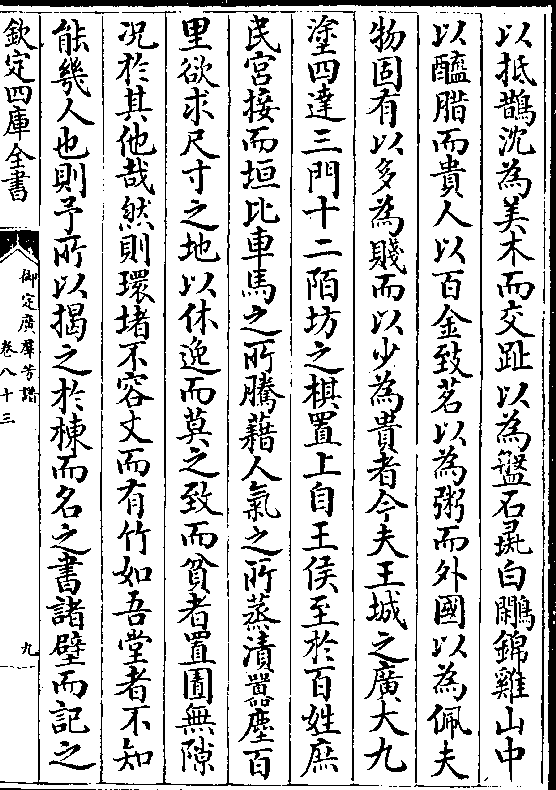 以抵鵲沈為美木而交趾以為盤石白鷴錦雞山中
以醢腊而貴人以百金致茗以為粥而外國以為佩夫
物固有以多為賤而以少為貴者今夫王城之廣大九
塗四達三門十二陌坊之棋置上自王侯至於百姓庶
民宮接而垣比車馬之所騰藉人氣之所蒸漬囂塵百
里欲求尺寸之地以休逸而莫之致而貧者置圊無隙
况於其他哉然則環堵不容丈而有竹如吾堂者不知
能幾人也則予所以揭之於棟而名之書諸壁而記之
欽定四庫全書
御定廣羣芳譜
卷八十三
九